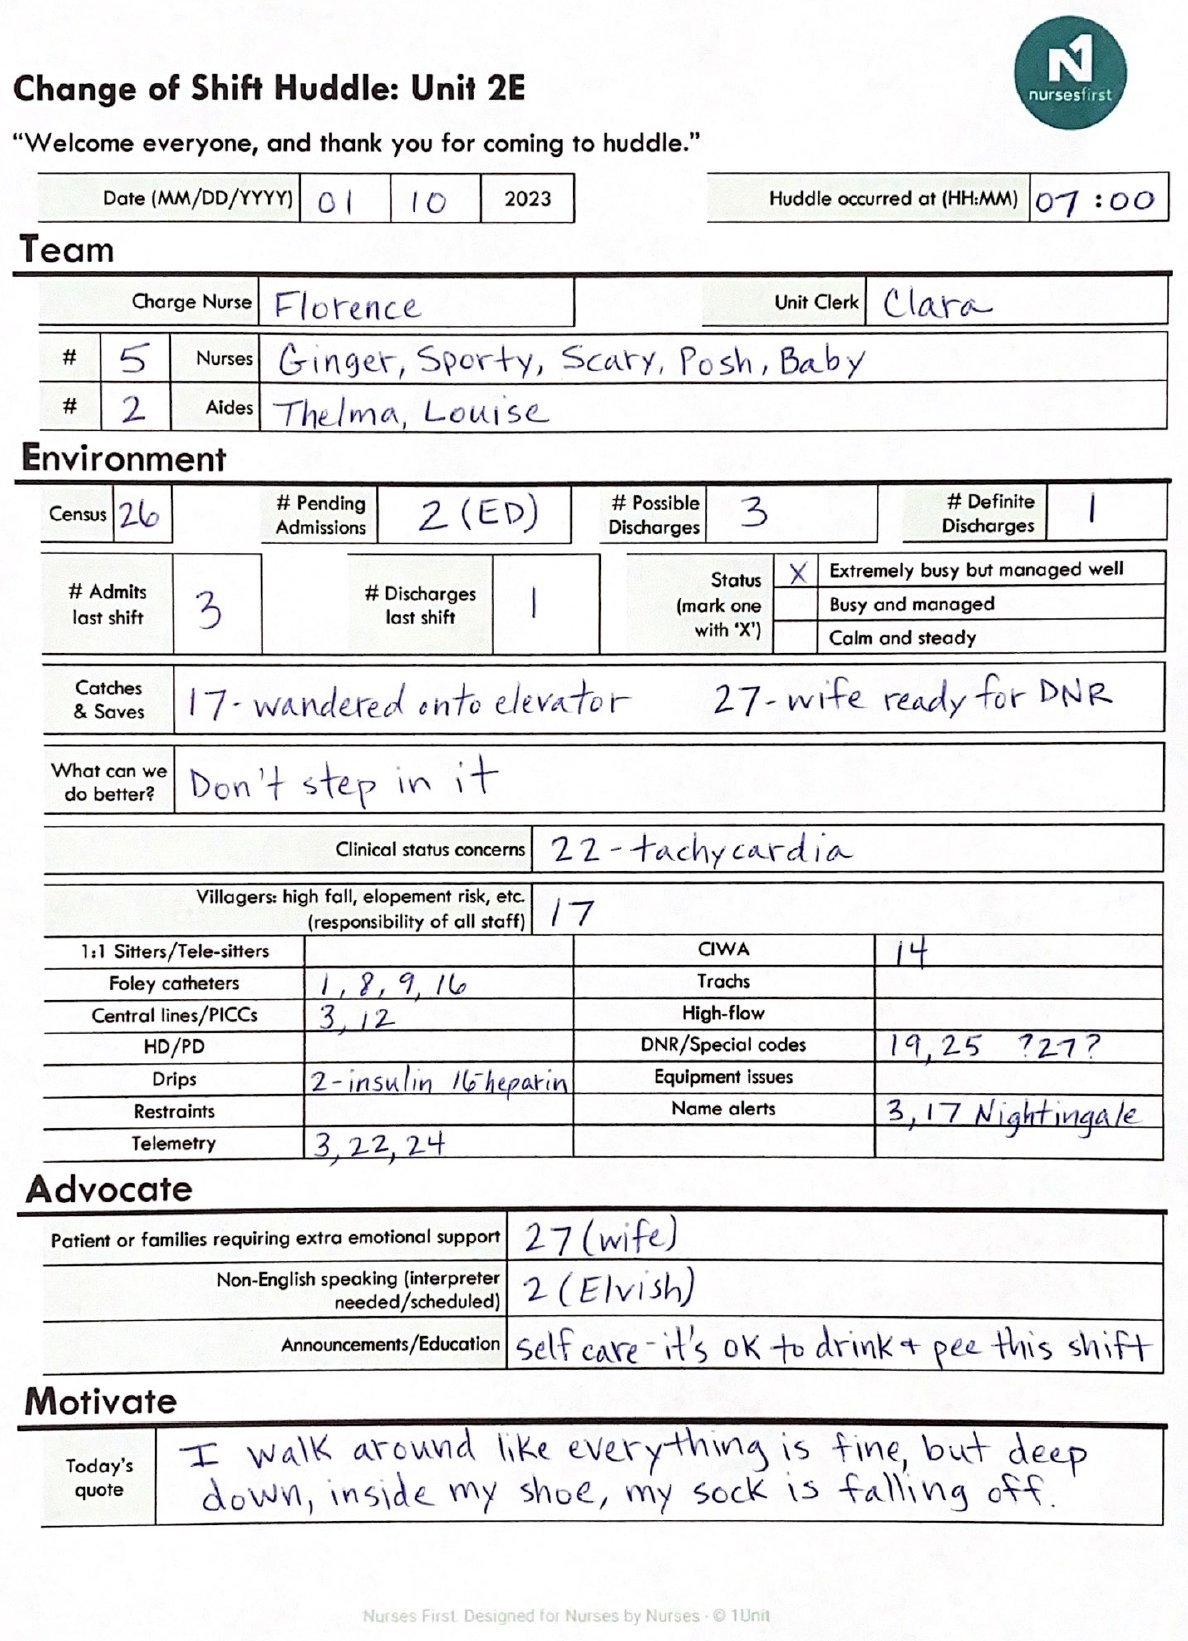 N1
nursesfirst
Change of Shift Huddle: Unit 2E
“Welcome everyone, and thank you for coming to huddle.”
Date (MM/DD/YYYY) 01 10 2023 Huddle occurred at (HH:MM) 07:00
Team
Charge Nurse Florence Unit Clerk Clara
# 5 Nurses Ginger, Sporty, Scary, Posh, Baby
# 2 Aides Thelma, Louise
Environment
Census 26 # Pending Admissions 2 (ED) # Possible Discharges 3 # Definite Discharges 1
# Admits last shift 3 # Discharges last shift 1 Status (mark one with ‘X’)
X Extremely busy but managed well
Busy and managed
Calm and steady
Catches & Saves 17- wandered onto elevator 27- wife ready for DNR
What can we do better? Don't step in it
Clinical status concerns 22 - tachycardia
Villagers: high fall, elopement risk, etc. (responsibility of all staff) 17
1:1 Sitters/Tele-sitters CIWA 14
Foley catheters 1, 8, 9, 16 Trachs
Central lines/PICCs 3, 12 High-flow
HD/PD DNR/Special codes 19, 25 ?27?
Drips 2-insulin 16-heparin Equipment issues
Restraints Name alerts 3, 17 Nightingale
Telemetry 3, 22, 24
Advocate
Patient or families requiring extra emotional support 27 (wife)
Non-English speaking (interpreter needed/scheduled) 2 (Elvish)
Announcements/Education self care - it's OK to drink + pee this shift
Motivate
Today's quote I walk around like everything is fine, but deep
down, inside my shoe, my sock is falling off.
Nurses First. Designed for Nurses by Nurses - © 1Unit